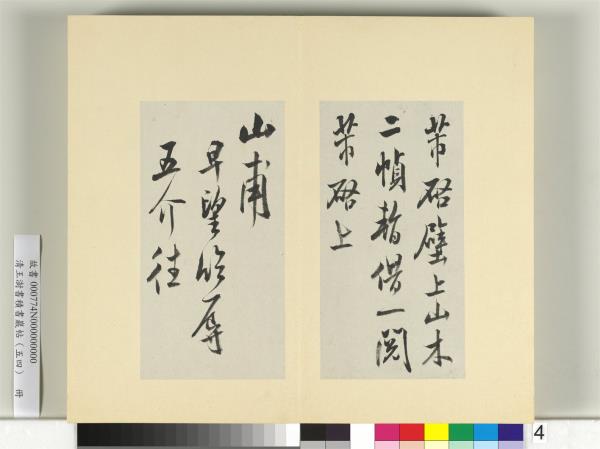 芾啓璧上山木
二幀暫借一閱
芾啓上
山甫
早望辱
五介往
故書 000774N000000000
清王澍書積書巖帖(五四) 冊
4